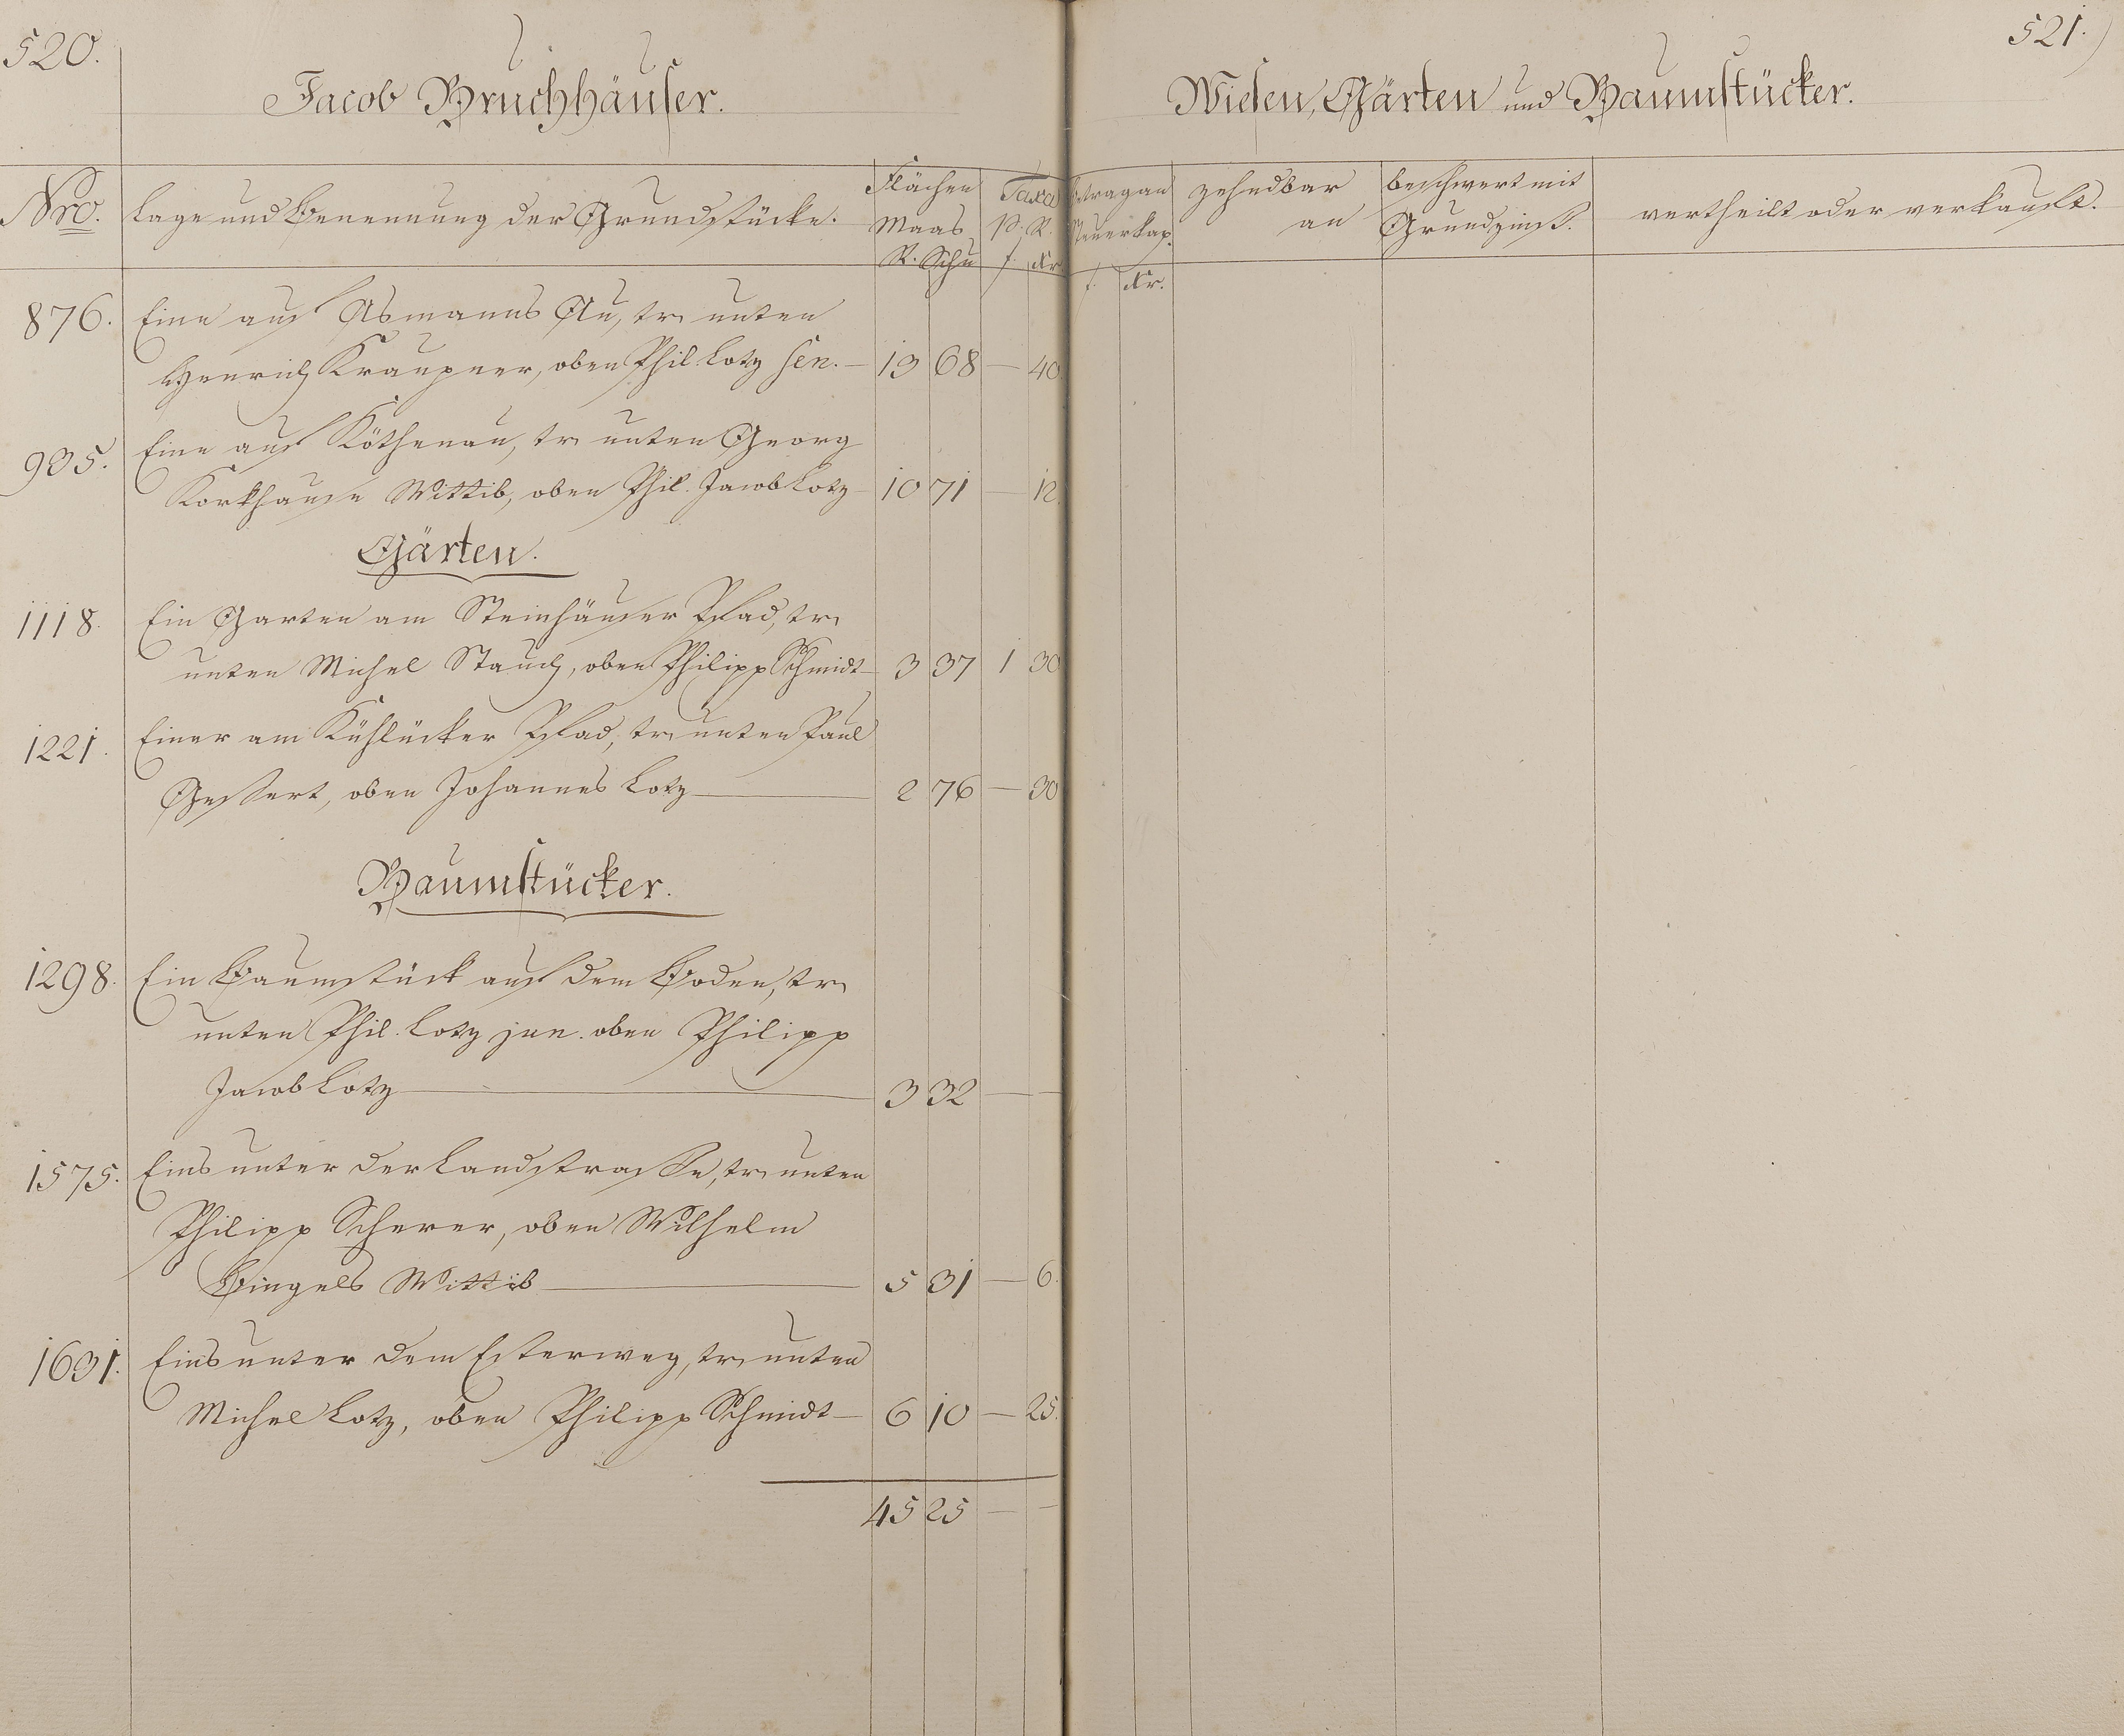 520.
Jacob Bruchhäuser.
Nro.
Lage und Benennung der Grundstücke.
Flächen
Maas
R. Schu
Taxa
p. R.
f. Xr.
876. Eine auf Asmanns Au, tr. unten
Henrich Kraupner, oben Phil. Lotz sen. — 19 68 — 40.
935. Eine auf Köthenau, tr. unten Georg
Korkhause Wittib, oben Phil. Jacob Lotz — 10 71 — 12.
Gärten.
1118. Ein Garten am Steinhäuser Pfad, tr.
unten Michel Stauch, oben Philipp Schmidt — 3 37 1 30
1221. Einer am Kühlücker Pfad, tr. unten Paul
Gessert, oben Johannes Lotz — 2 76 — 30
Baumstücker.
1298. Ein Baumstück auf dem Boden, tr.
unten Phil. Lotz jun. oben Philipp
Jacob Lotz — 3 32 — —
1575. Eins unter der Landstrasse, tr. unten
Philipp Scherer, oben Wilhelm
Bingels Wittib — 5 31 — 6.
1631. Eins unter dem Esterweg, tr. unten
Michel Lotz, oben Philipp Schmidt — 6 10 — 25.
45 25 — —
521.
Wiesen, Gärten und Baumstücker.
Betrag an
Steuerkap.
f. Xr.
zehndbar
an
beschwert mit
Grundzinß.
vertheilt oder verkauft.